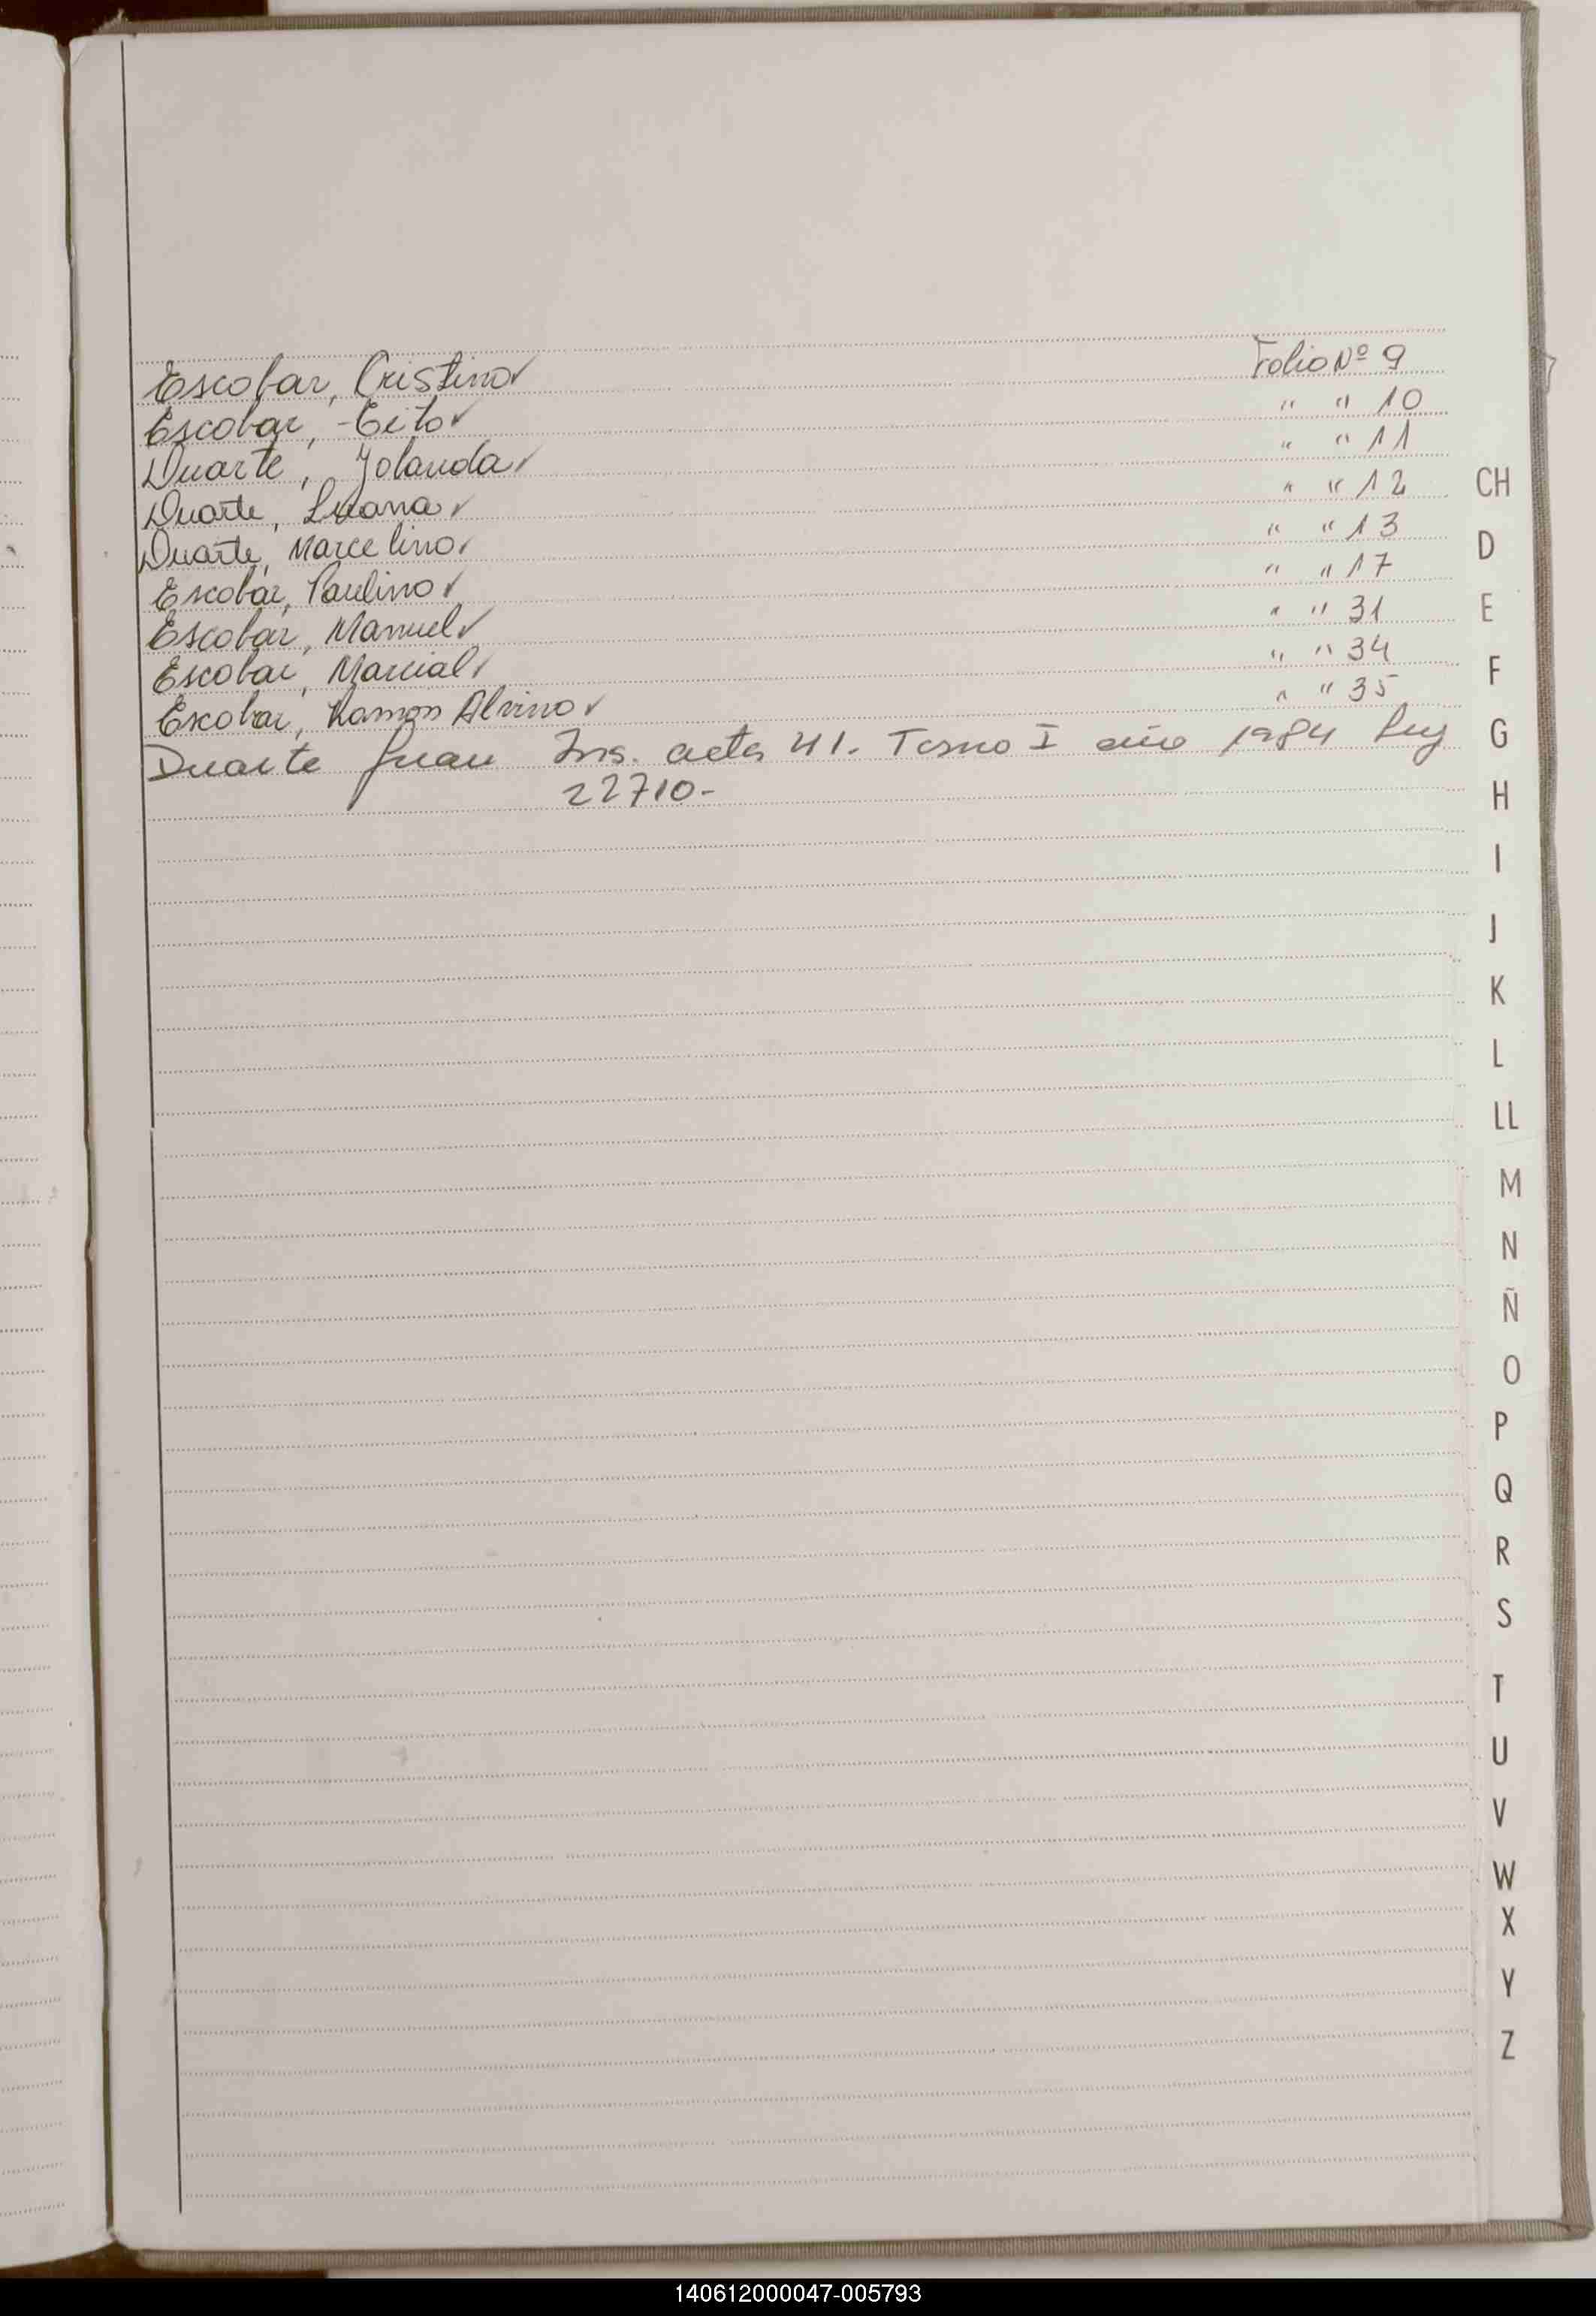 Escobar, Cristino ✓ Folio Nº 9
Escobar, - Eito ✓ " " 10
Duarte, Yolanda ✓ " " 11
Duarte, Luana ✓ " " 12
Duarte, Marcelino ✓ " " 13
Escobar, Paulino ✓ " " 17
Escobar, Manuel ✓ " " 31
Escobar, Marcial ✓ " " 34
Escobar, Ramon Alvino ✓ " " 35
Duarte Juan Ins. acta 41. Tomo I año 1984 Ley
22710-
CH
D
E
F
G
H
I
J
K
L
LL
M
N
Ñ
O
P
Q
R
S
T
U
V
W
X
Y
Z
140612000047-005793